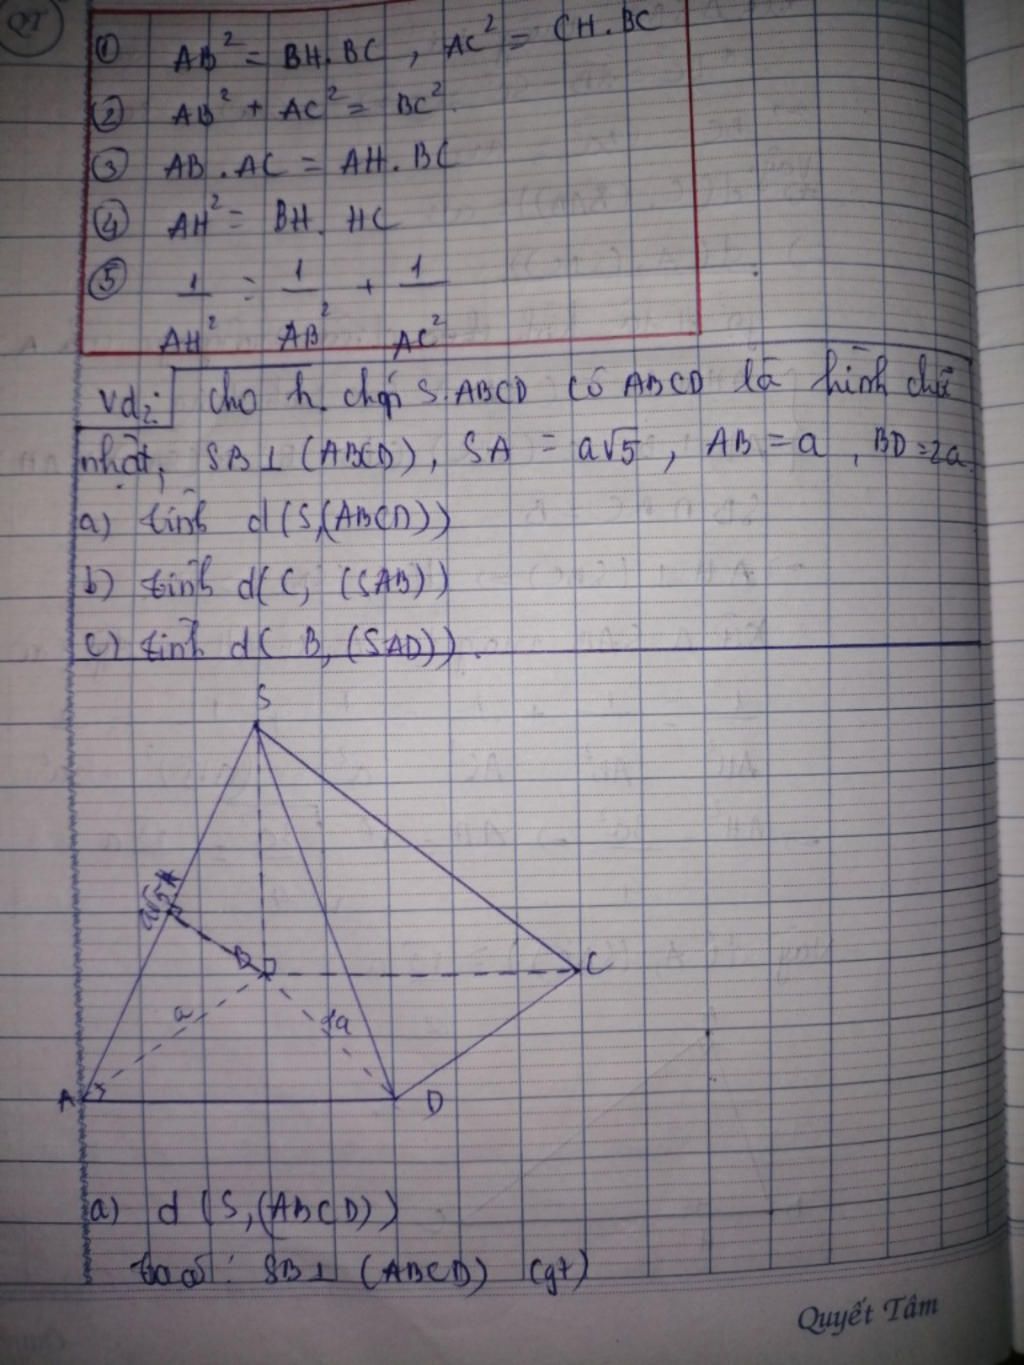 QT
① AB² = BH.BC , AC² = CH.BC
② AB² + AC² = BC²
③ AB.AC = AH.BC
④ AH² = BH.HC
⑤ 1/AH² = 1/AB² + 1/AC²
Vd₂: cho h. chóp S.ABCD có ABCD là hình chữ
nhật, SB⊥(ABCD), SA = a√5, AB = a, BD = 2a.
a) tính d(S,(ABCD))
b) tính d(C, (SAB))
c) tính d(B, (SAD)).
S
a√5
B
C
a
2a
A
D
a) d(S,(ABCD))
ta có: SB⊥ (ABCD) (gt)
Quyết Tâm